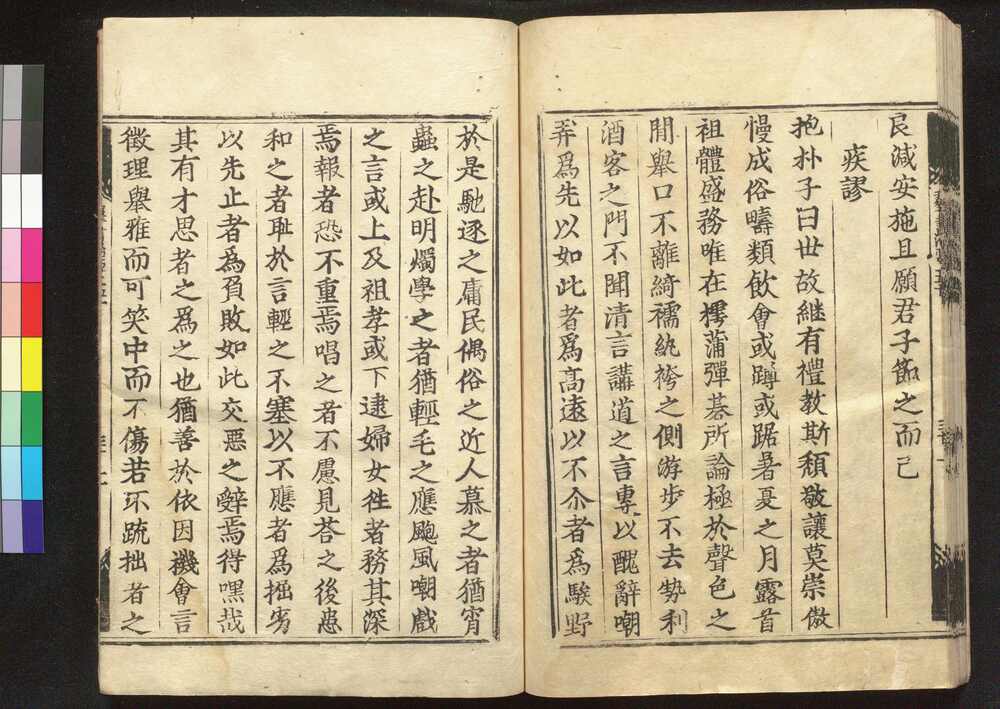 良減安施且願君子節之而已
疾謬
抱朴子曰世故継有禮教斯頽敬讓莫崇傲
慢成俗疇類飲會或蹲或踞暑夏之月露首
祖體盛務唯在摴蒲彈棊所論極於聲色之
間舉口不離綺襦紈袴之側游步不去勢利
酒客之門不聞清言講道之言專以醜辭嘲
弄爲先以如此者爲髙遠以不尒者爲騃野
於是馳逐之庸民偶俗之近人慕之者猶宵
蟲之赴明燭學之者猶輕毛之應飈風嘲戲
之言或上及祖孝或下逮婦女徃者務其深
焉報者恐不重焉唱之者不慮見荅之後患
和之者耻於言輕之不塞以不應者爲拙劣
以先止者為負敗如此交惡之辤焉得嘿哉
其有才思者之爲之也猶善於依因機會言
徵理舉雅而可笑中而不傷若夫疏拙者之